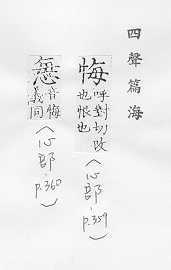 四聲篇海
悔
呼對切改
也恨也
(心部, p.359)
音悔
義同
(心部, p.360)